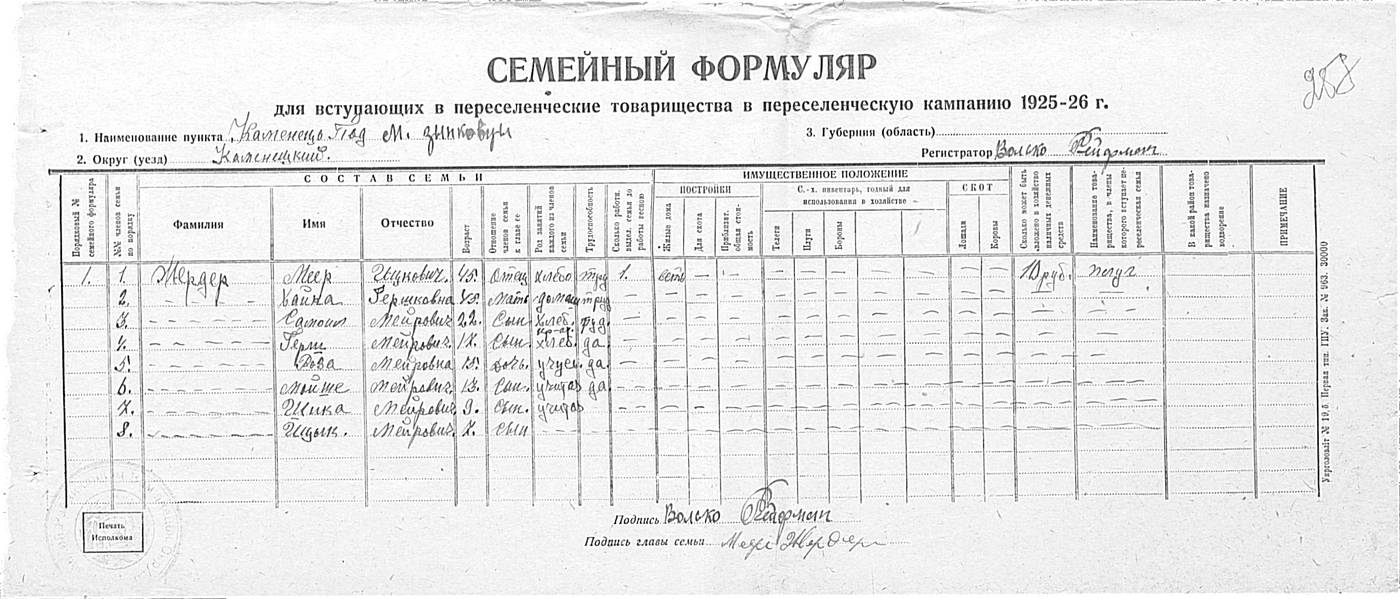 288
СЕМЕЙНЫЙ ФОРМУЛЯР
для вступающих в переселенческие товарищества в переселенческую кампанию 1925-26 г.
1. Наименование пункта Каменець Под м. Зинковци
3. Губерния (область)
2. Округ (уезд) Каменецкий.
Регистратор Волько Ройфман
Порядковый № семейного формуляра
№№ членов семьи по порядку
СОСТАВ СЕМЬИ
Фамилия
Имя
Отчество
Возраст
Отношение членов семьи к главе ее
Род занятий каждого из членов семьи
Трудоспособность
Сколько работн. выдел. семья до работы весною
ИМУЩЕСТВЕННОЕ ПОЛОЖЕНИЕ
ПОСТРОЙКИ
Жилые дома
Для скота
Приблизит. общая стоимость
С.-х. инвентарь, годный для использования в хозяйстве
Телеги
Плуги
Бороны
СКОТ
Лошади
Коровы
Сколько может быть вложено в хозяйство наличных денежных средств
Наименование товарищества, в члены которого вступает переселенческая семья
В какой район товарищества назначено водворение
ПРИМЕЧАНИЕ
1. 1. Жердер Меер Ицкович. 45. Отец хлебо труд 1. есть — — — — — — — — — 10 руб. плуг
2. — Хайка Гершковна 45. Мать домаш труд
3. — Мейрович 22. Сын хлеб. труд.
4. — Герш Мейрович. 17. Сын. хлеб. да.
5. — Роза Мейровна 15. Дочь. учус. да.
6. — Мойше Мейрович. 13. Сын. учится да.
7. — Шика Мейрович. 9. Сын. учится
8. — Ицык. Мейрович. 7. Сын
Печать Исполкома
Подпись Волько Ройфман
Подпись главы семьи Меер Жердер
Укрголовліт № 19, б. Первая тип. ГПУ. Зак. № 963. 30000